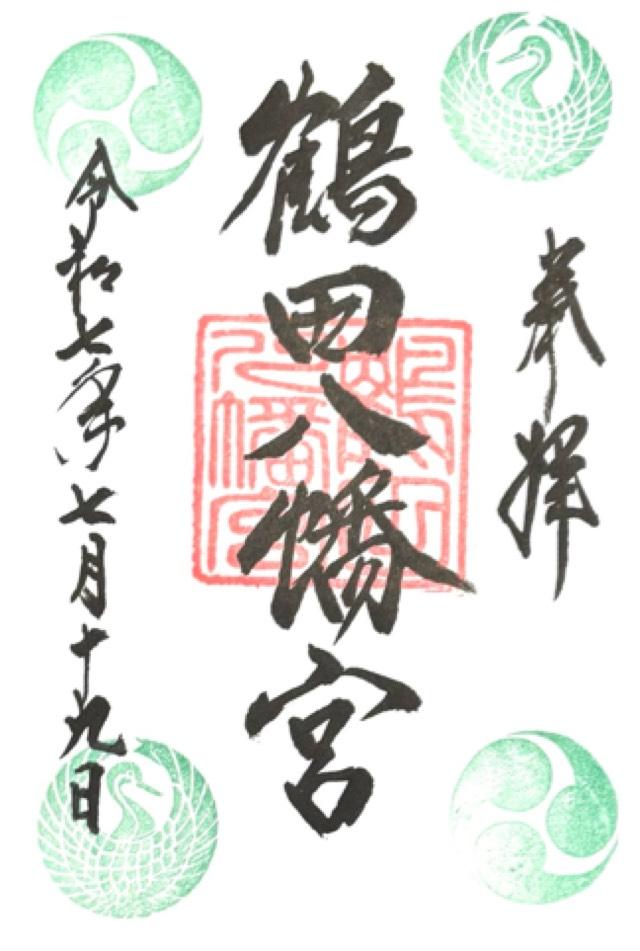 奉拝
鶴田八幡宮
令和七年七月十九日